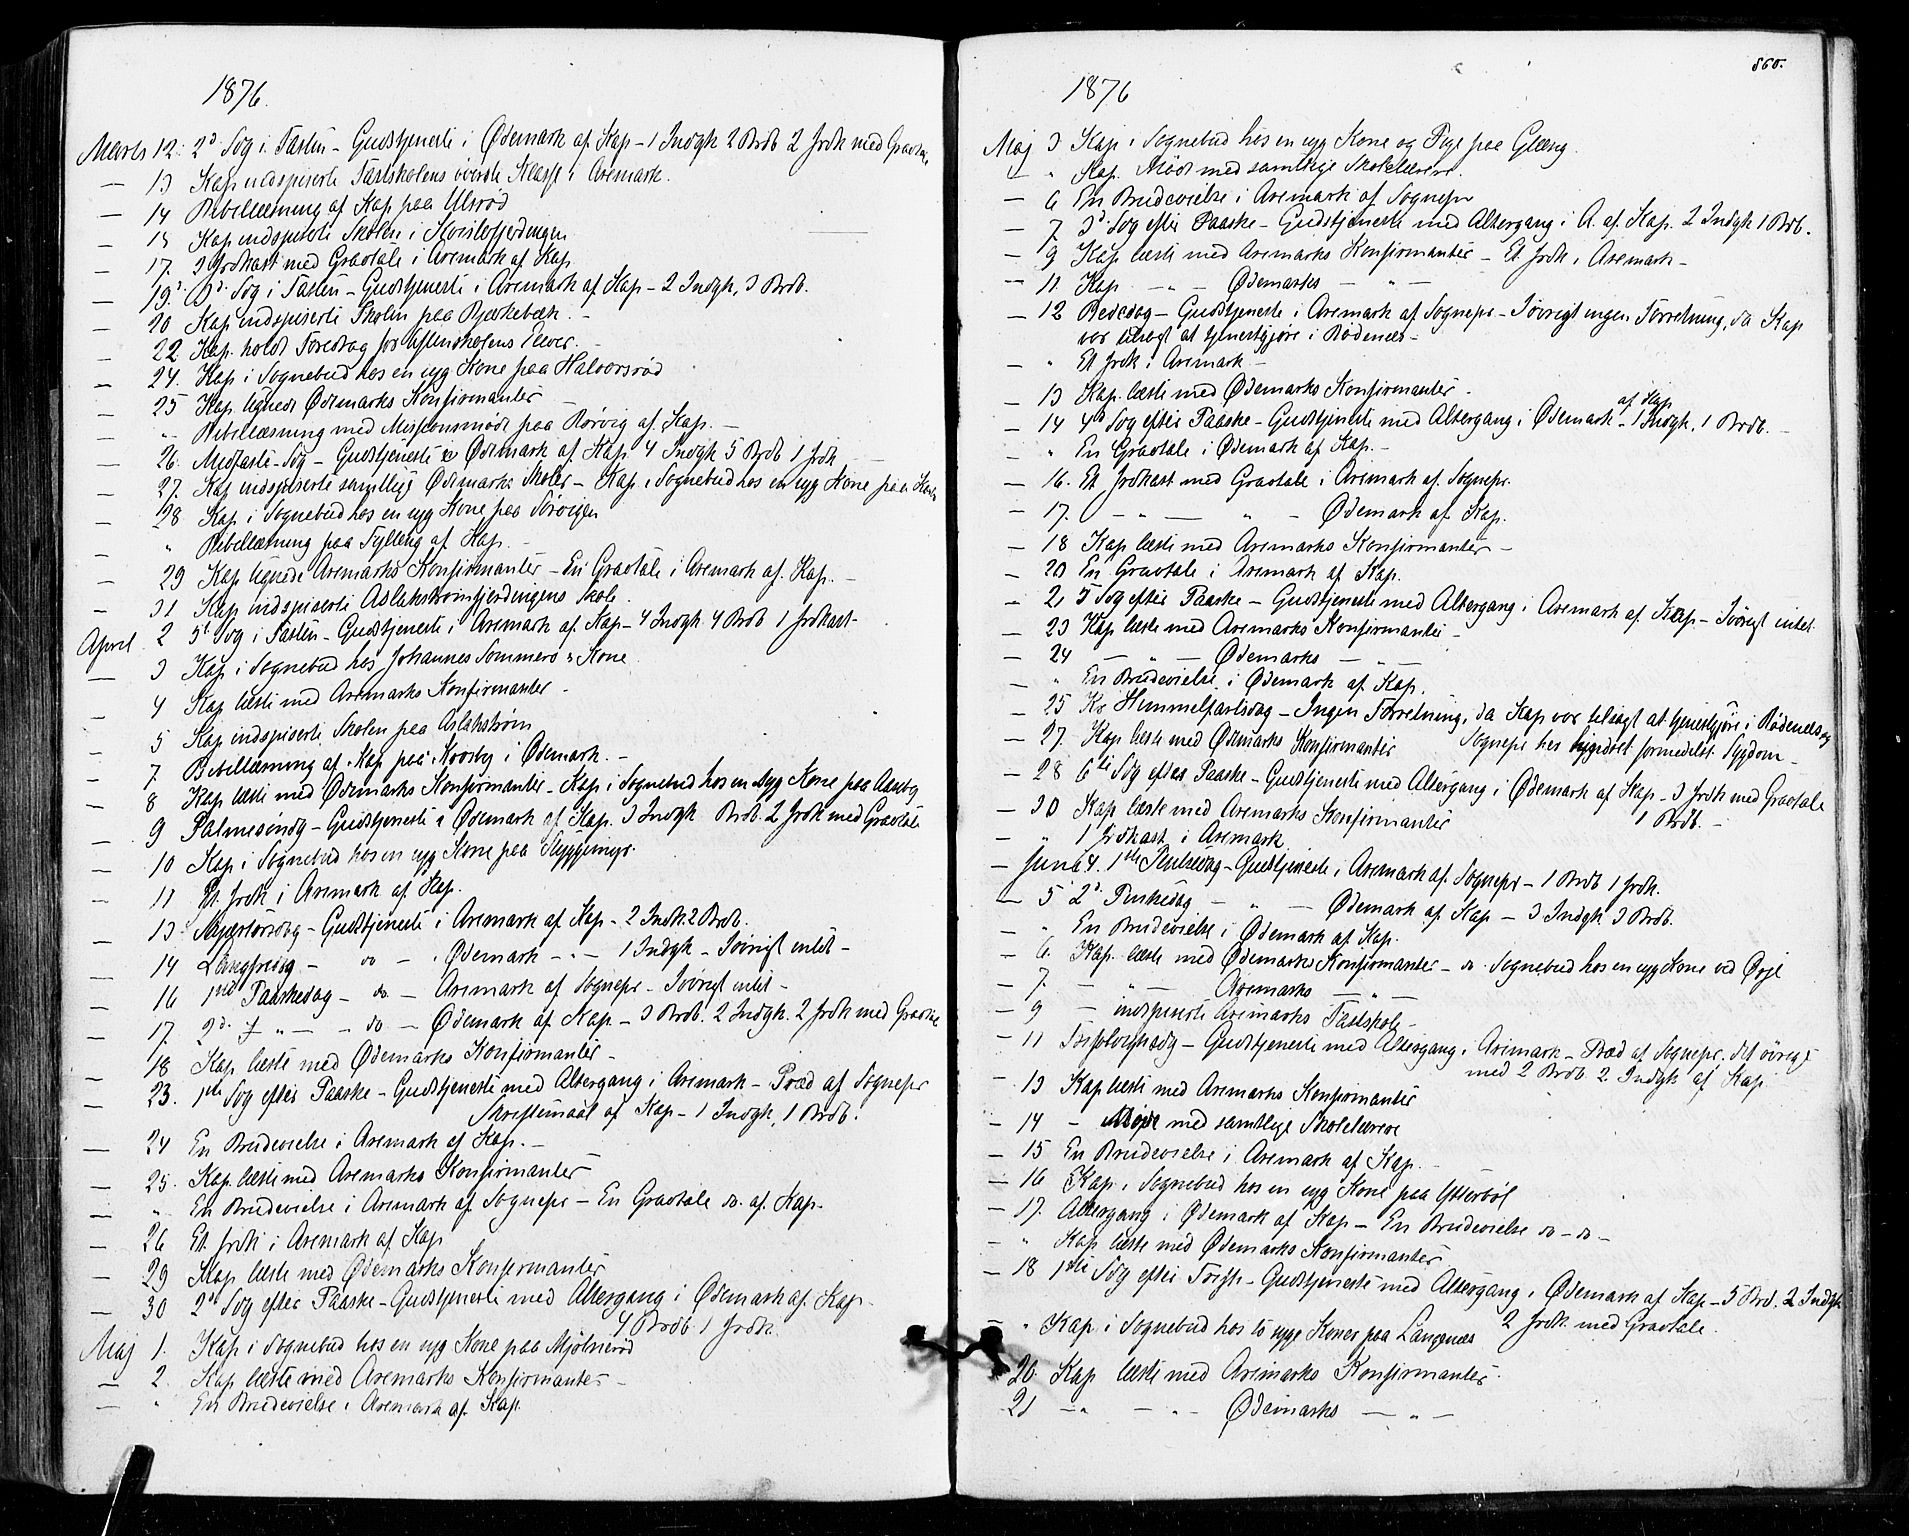 1876.
Marts 12. 2d Søg i Fasten - Gudstjeneste i Ødemark af Kap - 1 Indgk 2 Brdb 2 Jrdk med Gravtale
— 13 Kap indspiserte Fastskolens øverste Klasse i Aremark.
— 14 Bibellæsning af Kap paa Ulsrød
— 15 Kap indspiserte Skolen i
— 17. 3 Jrdkast med Gravtale i Aremark af Kap
— 19. 3d Søg i Fasten - Gudstjeneste i Aremark af Kap - 2 Indgk, 3 Brdb.
— 20 Kap indspiserte Skolen paa Bjørkebæk. -
— 22 Kap. holdt Foredrag for Aftenskolens Elever. -
— 24. Kap i Sognebud hos en syg Kone paa Halvorsrød
— 25 Kap. Ødemarks Konfirmanter -
— " Bibellæsning med Missionsmøde paa Rørvig af Kap. -
— 26. Midfaste-Søg - Gudstjeneste i Ødemark af Kap. 4 Indgk 5 Brdb 1 Jrdk -
— 27. Kap indspiserte samtlige Ødemarks Skoler - Kap i Sognebud hos en syg Kone paa
— 28 Kap i Sognebud hos en syg Kone paa Sørvigen
— " Bibellæsning paa Fylling af Kap. -
— 29 Kap Aremarks Konfirmanter - En Gravtale i Aremark af Kap. -
— 31 Kap indspiserte Aslakstrømfjerdingens Skole.
April 2 5t Søg i Fasten - Gudstjeneste i Aremark af Kap - 4 Indgk 4 Brdb 1 Jrdkast -
— 3 Kap i Sognebud hos Johannes Sommerø's Kone
— 4 Kap læste med Aremarks Konfirmanter -
— 5 Kap indspiserte Skolen paa Aslakstrøm
— 7. Bibellæsning af Kap paa Moosby i Ødemark. -
— 8 Kap læste med Ødemarks Konfirmanter - Kap i Sognebud hos en syg Kone paa Aaseby
— 9 Palmesøndg - Gudstjeneste i Ødemark af Kap. 3 Indgk Brdb. 2 Jrdk med Gravtale
— 10 Kap i Sognebud hos en syg Kone paa
— 11 Et Jrdk i Aremark af Kap.
— 13 Skjærtorsdag - Gudstjeneste i Aremark af Kap - 2 Indk 2 Brdb.
— 14 Langfredag - do - Ødemark - " - 1 Indgk - Iøvrigt intet -
— 16 1ste Paaskedag - do - Aremark af Sognepr - Iøvrigt intet -
— 17. 2d. - " - - do - Ødemark af Kap - 3 Brdb. 2 Indgk. 2 Jrdk med Gravtale
— 18 Kap læste med Ødemarks Konfirmanter -
— 23. 1ste Søg efter Paaske - Gudstjeneste med Altergang i Aremark - Præd af Sognepr
Skriftemaal af Kap - 1 Indgk, 1 Brdb.
— 24 En Brudevielse i Aremark af Kap. -
— 25. Kap læste med Aremarks Konfirmanter
— " En Brudevielse i Aremark af Sognepr - En Gravtale do. af Kap.
— 26 Et Jrdk i Aremark af Kap
— 29 Kap læste med Ødemarks Konfirmanter
— 30 2d Søg efter Paaske - Gudstjeneste med Altergang i Ødemark af Kap -
4 Brdb 1 Jrdk.
Maj 1. Kap i Sognebud hos en syg Kone paa Mjølnerød
— 2. Kap læste med Aremarks Konfirmanter -
— " En Brudevielse i Aremark af Kap
860.
1876
Maj 3 Kap i Sognebud hos en syg Kone og Pige paa Glæng.
— " Kap. Møde med samtlige Skolelærere.
— 6 En Brudevielse i Aremark af Sognepr
— 7. 3d Søg efter Paaske - Gudstjeneste med Altergang i A. af Kap. 2 Indgk 1 Brdb.
— 9 Kap læste med Aremarks Konfirmanter - Et Jrdk i Aremark -
— 11 Kap - " - Ødemarks - " -
— 12 Bededag - Gudstjeneste i Aremark af Sognepr - Iøvrigt ingen Forretning, da Kap
var tilsagt at tjenestgjøre i Rødenæs -
— " Et Jrdk i Aremark -
— 13 Kap. læste med Ødemarks Konfirmanter -
— 14 4d Søg efter Paaske - Gudstjeneste med Altergang i Ødemark af Kap - 1 Indgk, 1 Brdb. -
— " En Gravtale i Ødemark af Kap. -
— 16. Et Jrdkast med Gravtale i Aremark af Sognepr.
— 17. - " - " - Ødemark af Kap.
— 18 Kap læste med Aremarks Konfirmanter -
— 20 En Gravtale i Aremark af Kap.
— 21 5 Søg efter Paaske - Gudstjeneste med Altergang i Aremark af Kap - Iøvrigt intet
— 23 Kap læste med Aremarks Konfirmanter -
— 24 - " - Ødemarks - " -
— " En Brudevielse i Ødemark af Kap.
— 25 Kr Himmelfartsdag - Ingen Forretning, da Kap var tilsagt at tjenestgjøre i Rødenes og
Sognepr her formedelst Sygdom -
— 27. Kap læste med Ødemarks Konfirmanter
— 28 6te Søg efter Paaske - Gudstjeneste med Altergang i Ødemark af Kap - 3 Jrdk med Gravtale
1 Brdb. -
— 30 Kap læste med Aremarks Konfirmanter
— " 1 Jrdkast i Aremark
— Juni 4. 1ste Pintsedag - Gudstjeneste i Aremark af Sognepr - 1 Brdb 1 Jrdk.
— 5 2d Pintsedag - " - Ødemark af Kap - 3 Indgk 3 Brdb.
— " En Brudevielse i Ødemark af Kap.
— 6. Kap læste med Ødemarks Konfirmanter - do. Sognebud hos en syg Kone ved Ørje
— 7. - " - Aremarks - " -
— 9 - indspiserte Aremarks Fastskole -
— 11 - Gudstjeneste med Altergang i Aremark - Præd af Sognepr. det øvrige
med 2 Brdb 2 Indgk af Kap
— 13 Kap læste med Aremarks Konfirmanter
— 14 - Møde med samtlige Skolelærere
— 15 En Brudevielse i Aremark af Kap. -
— 16 Kap i Sognebud hos en syg Kone paa Ytterbøl
— 17. Altergang i Ødemark af Kap - En Brudevielse do - do -
— " Kap læste med Ødemarks Konfirmanter
— 18 1ste Søg efter Trefh - Gudstjeneste med Altergang i Ødemark af Kap - 5 Brd. 2 Indgk
2 Jrdk. med Gravtale.
— " Kap i Sognebud hos to syge Koner paa Langnæs
20. Kap læste med Aremarks Konfirmanter.
21 - " - " - Ødemarks - " -